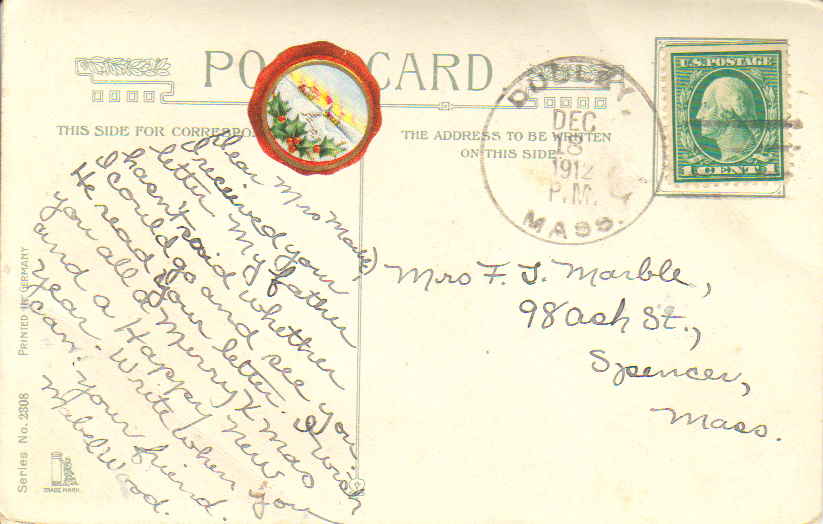 POST CARD
THIS SIDE FOR CORRESPO
THE ADDRESS TO BE WRITTEN
ON THIS SIDE
DUDLEY,
DEC
18
1912
P.M.
MASS.
U.S. POSTAGE
1 CENT 1
Dear Mrs Marble,
I received your
letter. My father
hasn't said whether
I could go and see you.
He read your letter. I wish
you all a Merry Xmas
and a Happy New
Year. Write when you
can. Your friend.
Mabel Wood.
Mrs F. J. Marble,
98 Ash St.,
Spencer,
Mass.
Series No. 2308 PRINTED IN GERMANY
TRADE MARK.